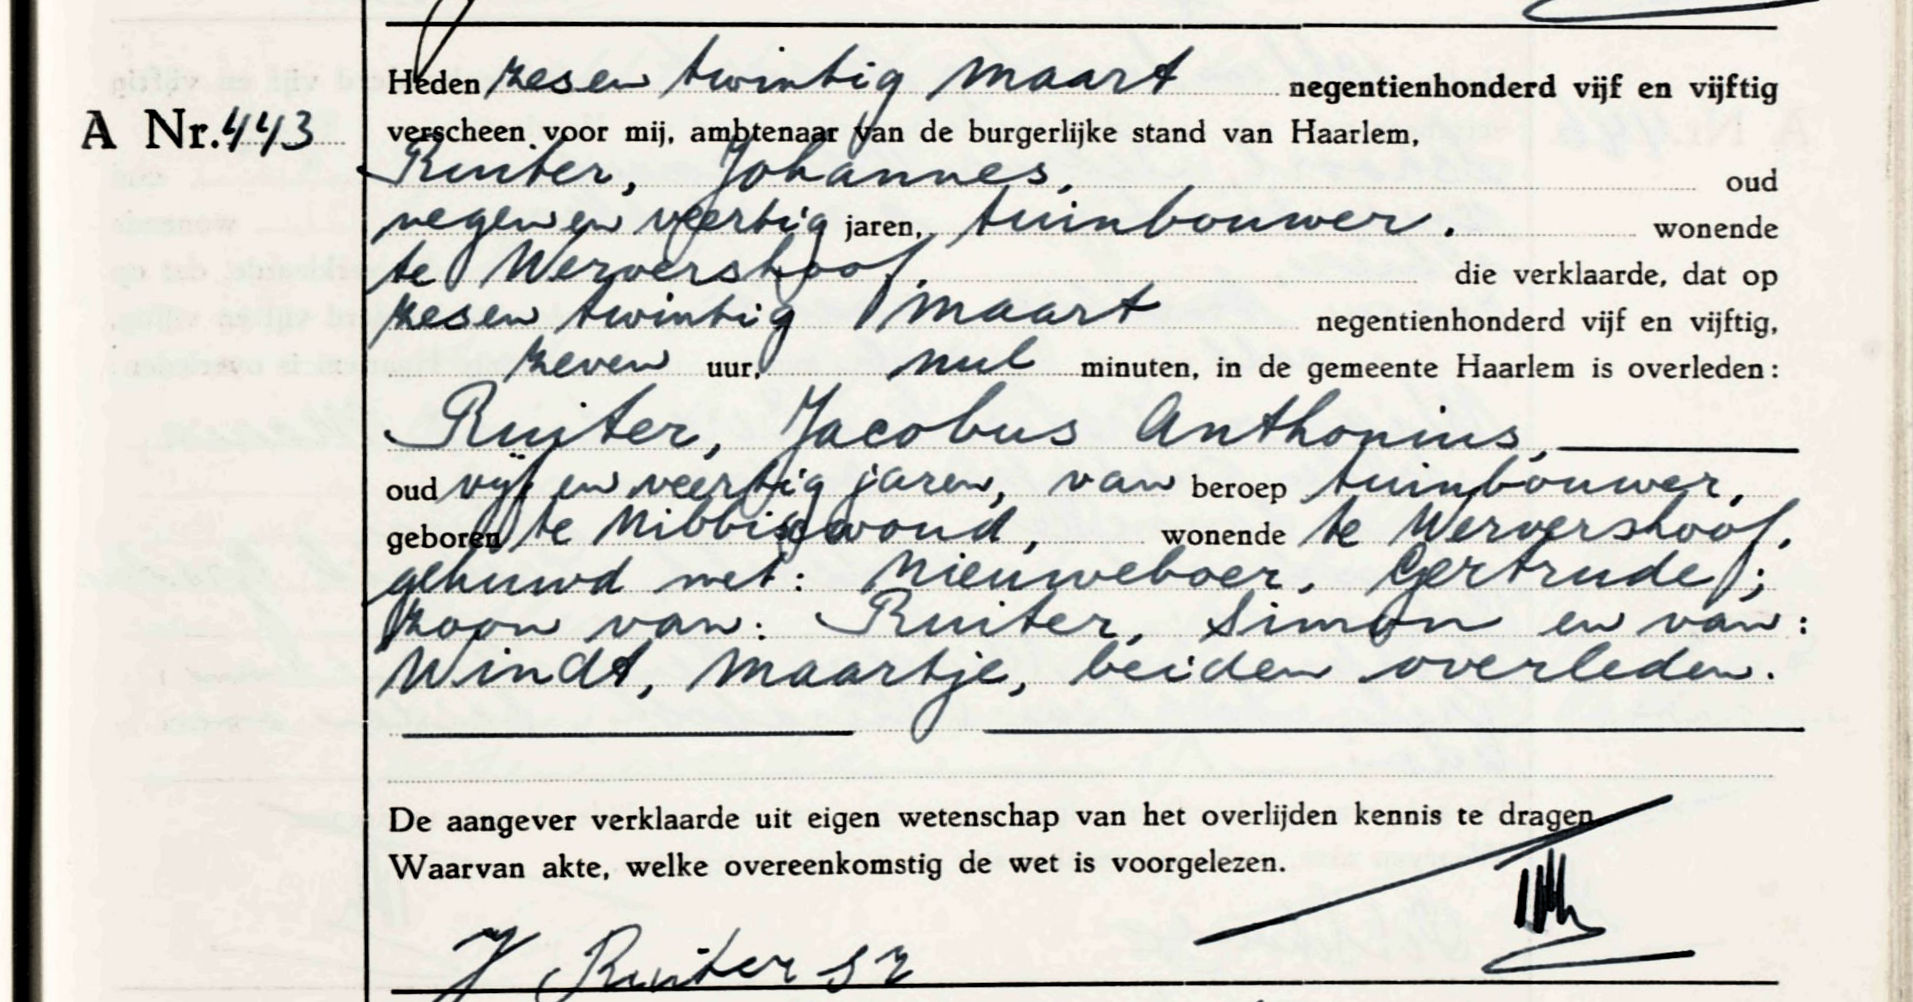 Heden zesen twintig maart negentienhonderd vijf en vijftig
A Nr. 443
verscheen voor mij, ambtenaar van de burgerlijke stand van Haarlem,
Ruiter, Johannes, oud
negen en veertig jaren, tuinbouwer. wonende
te Wervershoof, die verklaarde, dat op
zesen twintig maart negentienhonderd vijf en vijftig,
zeven uur, nul minuten, in de gemeente Haarlem is overleden:
Ruiter, Jacobus Anthonius,
oud vijf en veertig jaren, van beroep tuinbouwer,
geboren te Nibbixwoud, wonende te Wervershoof,
gehuwd met: Nieuweboer, Gertrude;
zoon van: Ruiter, Simon en van:
Windt, Maartje, beiden overleden.
De aangever verklaarde uit eigen wetenschap van het overlijden kennis te dragen
Waarvan akte, welke overeenkomstig de wet is voorgelezen.
J Ruiter Sz